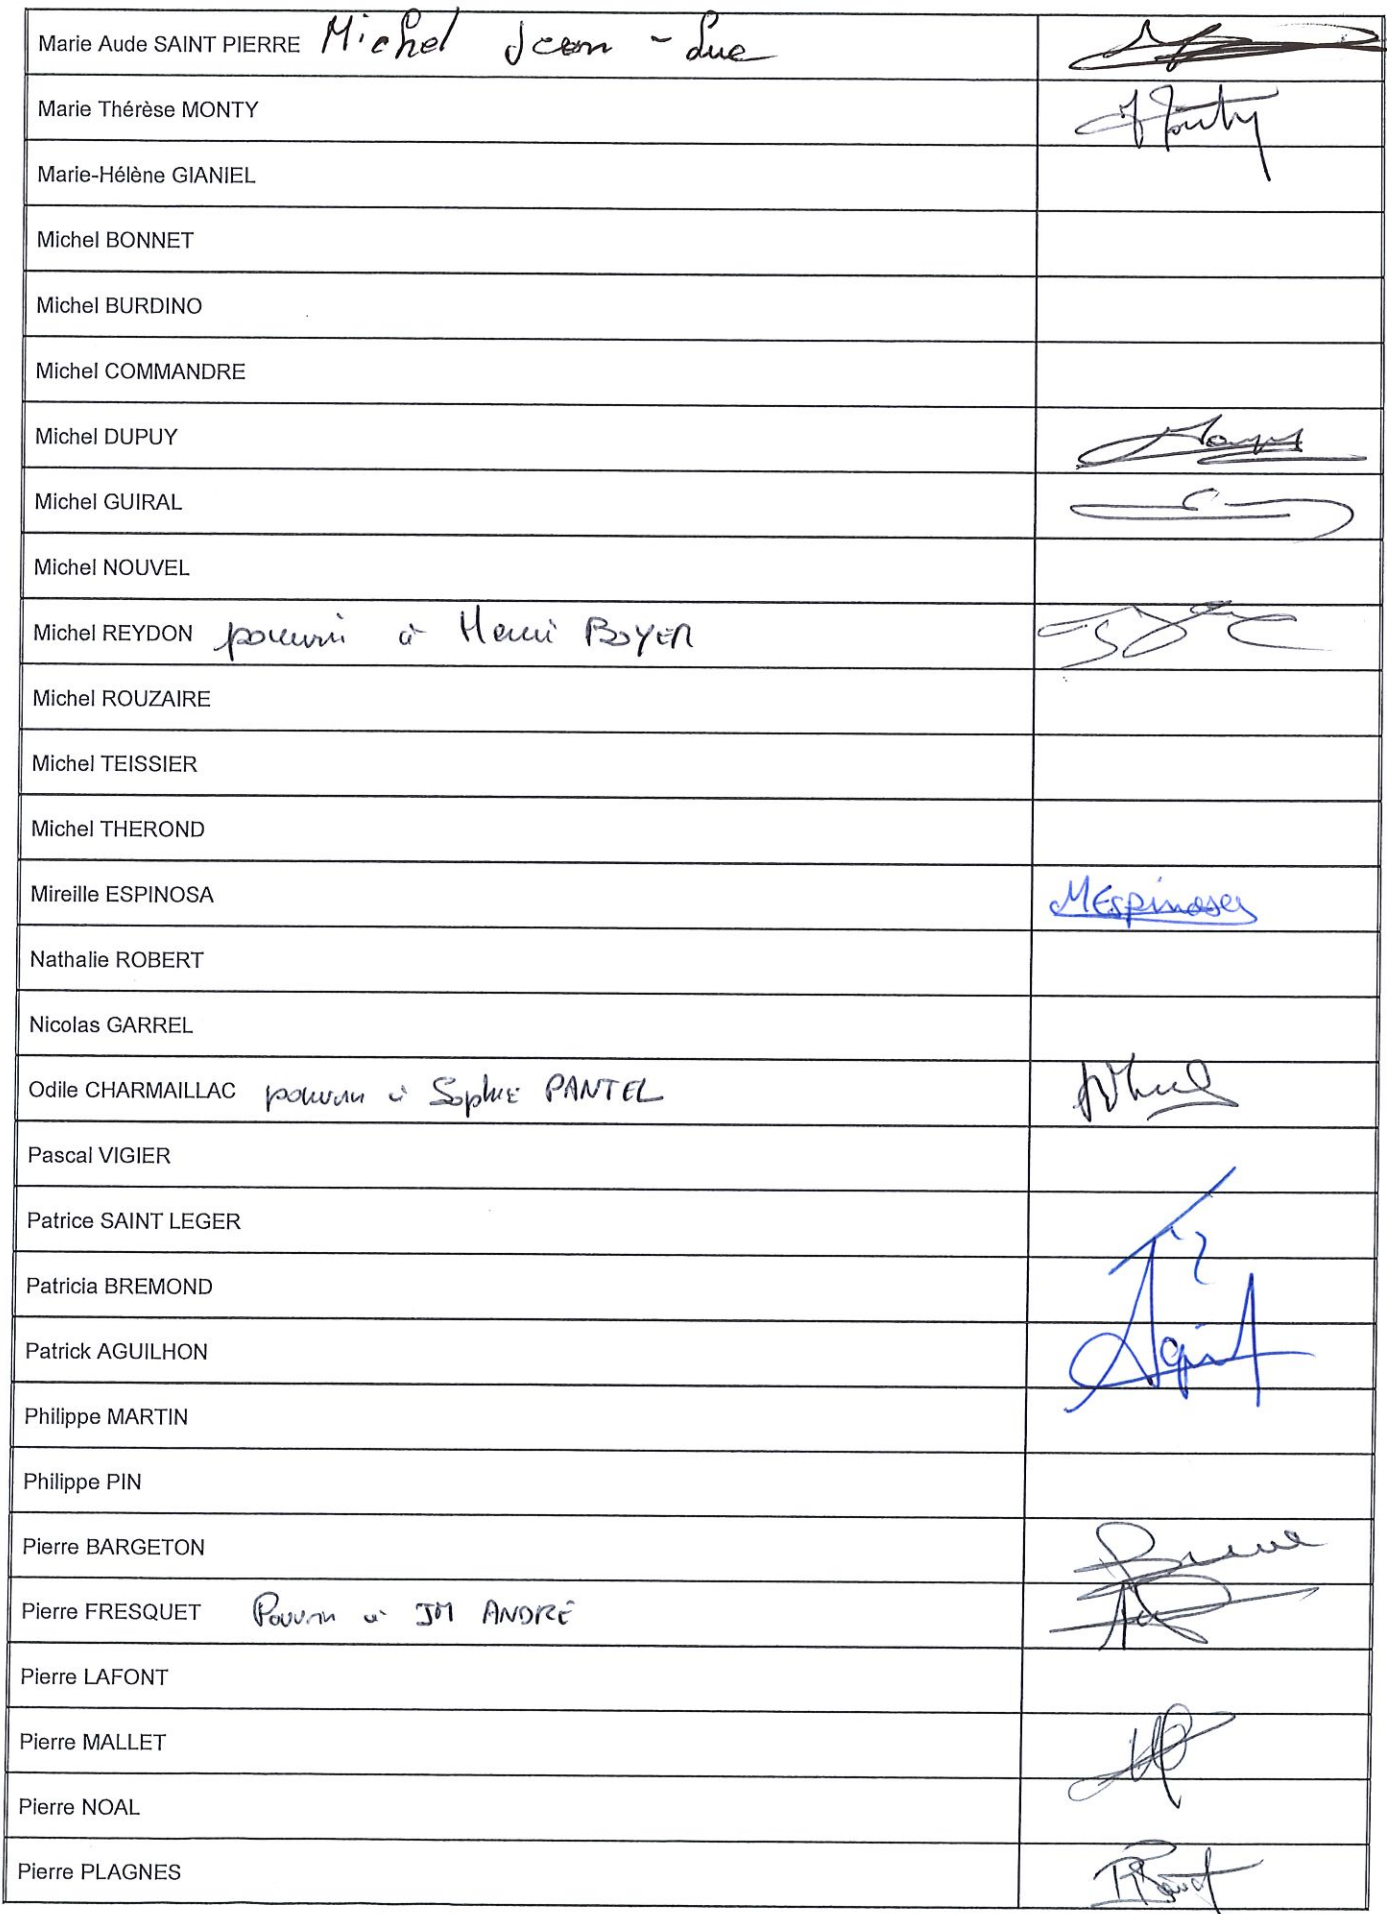 Marie Aude SAINT PIERRE Michel Jean - Luc
Marie Thérèse MONTY
Marie-Hélène GIANIEL
Michel BONNET
Michel BURDINO
Michel COMMANDRE
Michel DUPUY
Michel GUIRAL
Michel NOUVEL
Michel REYDON pouvoir à Henri BOYER
Michel ROUZAIRE
Michel TEISSIER
Michel THEROND
Mireille ESPINOSA MEspinosa
Nathalie ROBERT
Nicolas GARREL
Odile CHARMAILLAC pouvoir à Sophie PANTEL
Pascal VIGIER
Patrice SAINT LEGER
Patricia BREMOND
Patrick AGUILHON
Philippe MARTIN
Philippe PIN
Pierre BARGETON
Pierre FRESQUET Pouvoir à JM ANDRÉ
Pierre LAFONT
Pierre MALLET
Pierre NOAL
Pierre PLAGNES